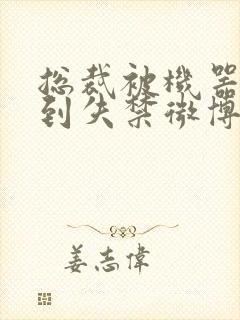 总裁被機器
到失禁微博
姜志偉